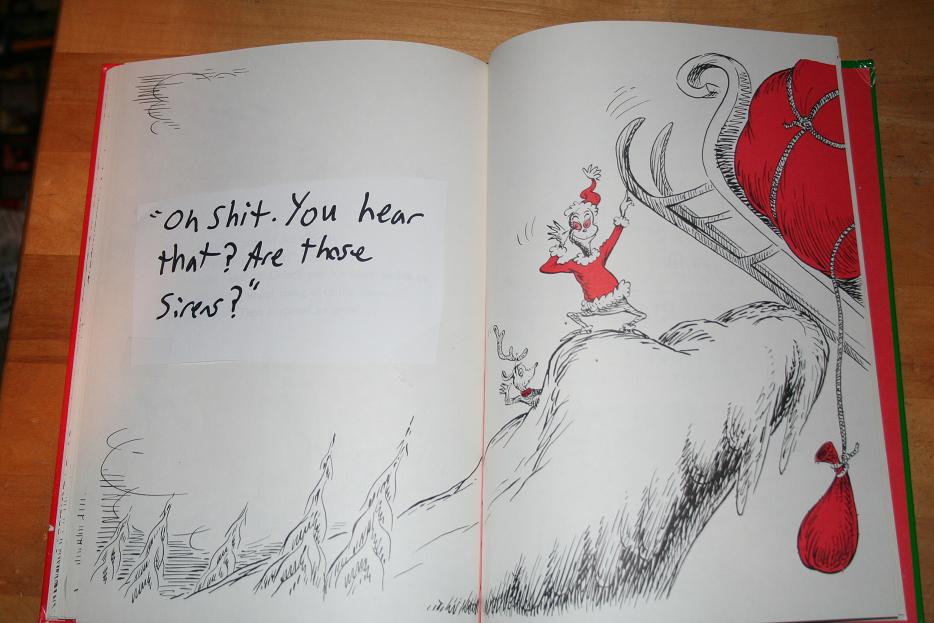 "Oh shit. You hear
that? Are those
sirens?"